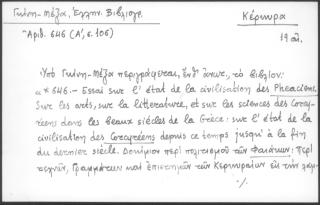 Γκίνη - Μέξα, Ἑλλην. Βιβλιογρ.
Κέρκυρα
Ἀριθ. 646 (Α', σ. 106)
19
Ὑπὸ Γκίνη - Μέξα περιγράφεται, τὸ βιβλίον:
«* 646. - Essai sur l' état de la civilisation des Pheaciens.
Sur les arts, sur la litterature, et sur les sciences des Corcy-
réens dans les beaux siécles de la Grèce: sur l' état de la
civilisation des Corcyréens depuis ce temps jusqu' à la fin
du dernier siècle. Δοκίμιον περὶ πολιτισμοῦ τῶν Φαιάκων. Περὶ
τεχνῶν, γραμμάτων καὶ ἐπιστημῶν τῶν Κερκυραίων
./.